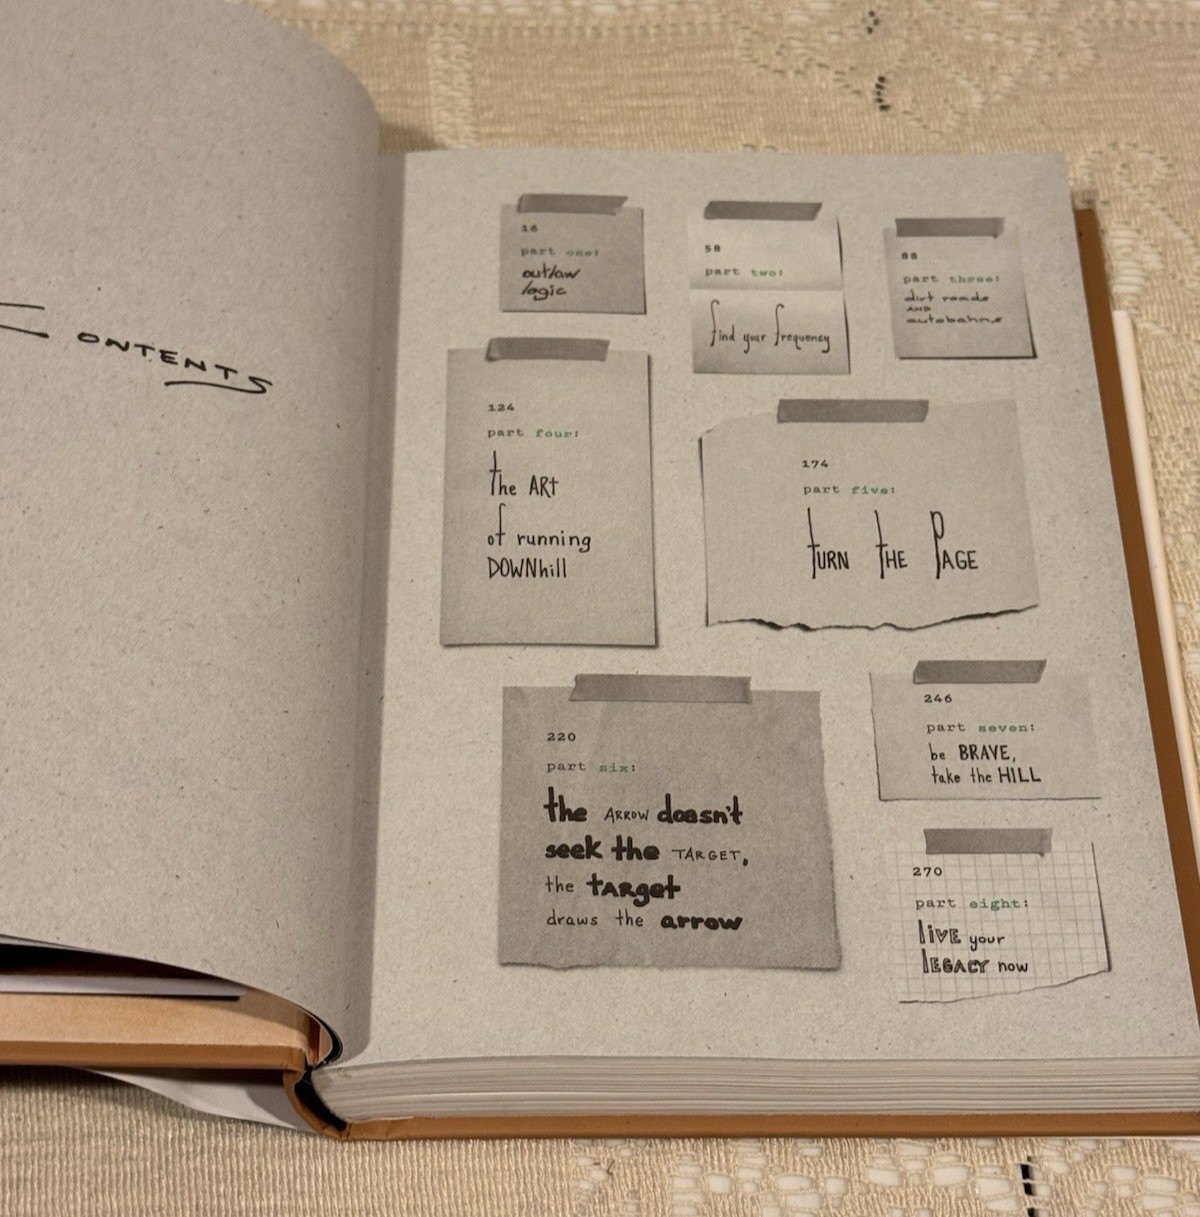 CONTENTS
16
part one:
outlaw
logic
58
part two:
find your frequency
88
part three:
dirt roads
AND
autobahns
124
part four:
the ARt
of running
DOWNhill
174
part five:
TURN THE PAGE
220
part six:
the ARROW doesn't
seek the TARGET,
the TARget
draws the arrow
246
part seven:
be BRAVE,
take the HILL
270
part eight:
LiVE your
LEGACY now